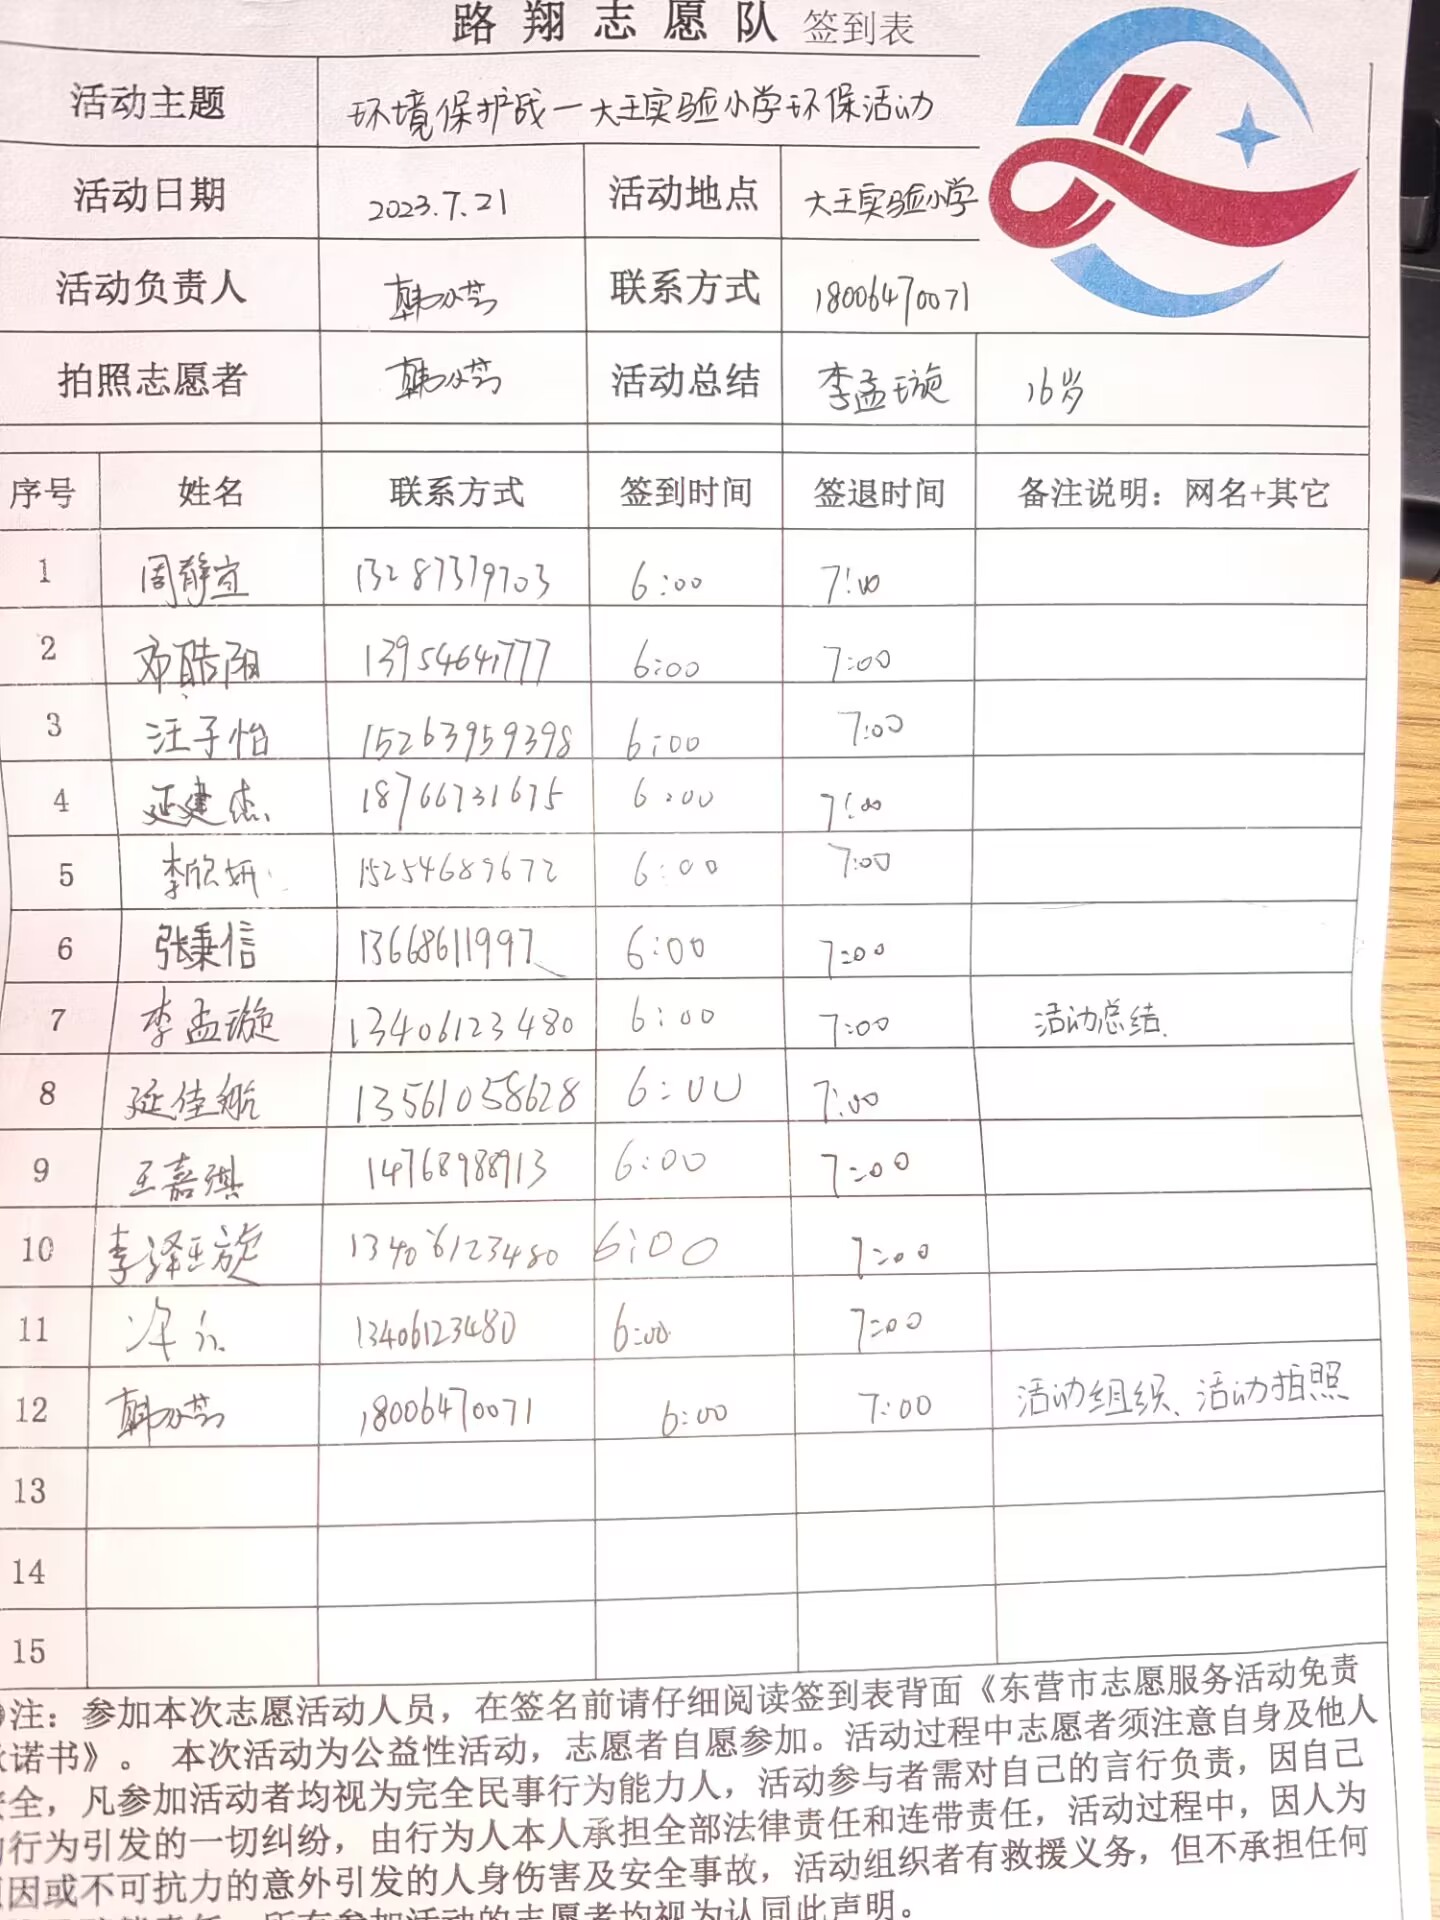 路翔志愿队 签到表
活动主题 环境保护战一大王实验小学环保活动
活动日期 2023.7.21 活动地点 大王实验小学
活动负责人 韩 联系方式 18006470071
拍照志愿者 韩 活动总结 李孟璇 16岁
序号 姓名 联系方式 签到时间 签退时间 备注说明：网名+其它
1 周静宜 13287379703 6:00 7:00
2 邓皓阳 13954641777 6:00 7:00
3 汪子怡 15263959398 6:00 7:00
4 延建杰 18766731675 6:00 7:00
5 李欣妍 15254689672 6:00 7:00
6 张秉信 13668611997 6:00 7:00
7 李孟璇 13406123480 6:00 7:00 活动总结.
8 延佳航 13561058628 6:00 7:00
9 王嘉琪 14768988913 6:00 7:00
10 李泽璇 13406123480 6:00 7:00
11 13406123480 6:00 7:00
12 韩 18006470071 6:00 7:00 活动组织、活动拍照
13
14
15
注：参加本次志愿活动人员，在签名前请仔细阅读签到表背面《东营市志愿服务活动免责
诺书》。 本次活动为公益性活动，志愿者自愿参加。活动过程中志愿者须注意自身及他人
全，凡参加活动者均视为完全民事行为能力人，活动参与者需对自己的言行负责，因自己
行为引发的一切纠纷，由行为人本人承担全部法律责任和连带责任，活动过程中，因人为
因或不可抗力的意外引发的人身伤害及安全事故，活动组织者有救援义务，但不承担任何
责任，所有参加活动的志愿者均视为认同此声明。